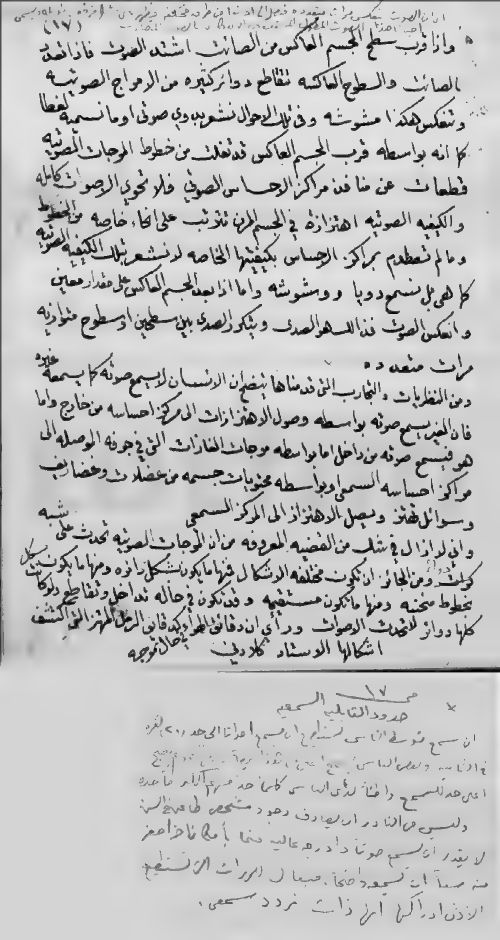 ان الصوت ينعكس مرات متعدده
(١٧)
واذا قرب سطح الجسم العاكس من الصائت اشتد الصوت فاذا تعدد
الصائت والسطوح العاكسه تتقاطع دوائر كثيره من الامواج الصوتيه
وتنعكس هكذا مشوشه وفي تلك الاحوال نشعر بدوي صوتي او ما نسميه لغطا
كما انه بواسطه قرب الجسم العاكس قد تفلت من خطوط الموجات الصوتيه
قطعات عن منافذ مراكز الاحساس الصوتي فلا تحوي الاصوات كامله
والكيفيه الصوتيه اهتزازة في الجسم المرن تترتب على انحاء خاصه من الخطوط
وما لم تصطدم بمراكز الاحساس بكيفيتها الخاصه لا نشعر بتلك الكيفيه الصوتيه
كما هي بل نسمع دويا ووشوشه واما اذا بعد الجسم العاكس على مقدار معين
وانعكس الصوت فذالك هو الصدى ويتكرر الصدى بين سطحين او سطوح متوازيه
مرات متعدده
ومن النظريات والتجارب التي قدمناها يتضح ان الانسان لا يسمع صوته كما يسمعه غيره
فان الغير يسمع صوته بواسطه وصول الاهتزازات الى مركز احساسه من خارج واما
هو فيسمع صوته من داخل اما بواسطه موجات الغازات التي في جوفه الموصله الى
مراكز احساسه السمعي او بواسطه محتويات جسمه من عضلات وغضاريف
وسوائل تهتز ويصل الاهتزاز الى المركز السمعي
واني لا ازال في شك من القضيه المعروفه من ان الموجات الصوتيه تحدث على شبه
كرات ومن الجائز ان تكون مختلفه الاشكال فمنها ما يكون بشكل دائره ومنها ما يكون بشكل
خطوط منحنيه ومنها ما تكون مستقيمه وقد تكون في حاله تداخل وتقاطع ولو كانت
كلها دوائر لاتحدت الاصوات ورأي ان دقائق الهواء كدقائق الرمل المهتز التي اكتشف
اشكالها الاستاذ كلادني حال تموجه
ص ١٧
× حدود القابليه السمعيه
ان سمع متوسط الناس يستطيع ان يسمع اصواتا الى حد
في الثانيه وبعض الناس يسمع
اعلى حد للسمع
وليس من النادر ان يصادف وجود شخص طاعن في السن
لا يقدر ان يسمع صوتا ذا درجه عاليه بينما
منه سنا ان يسمعه واضحا. فمجال الهزات التي تستطيع
الاذن ادراكها انها ذات تردد سمعي.